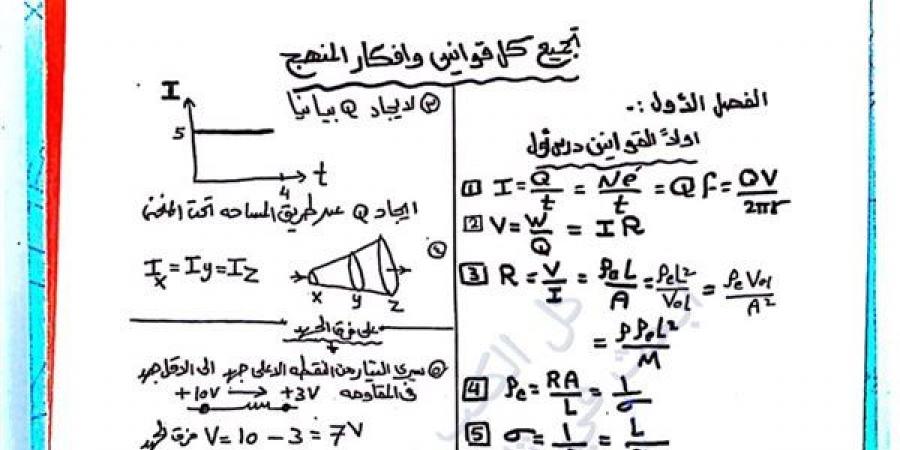 تجميع كل قوانين وافكار المنهج
الفصل الأول :-
اولاً القوانين درس أول
1 I = Q/t = Ne/t = Q f = QV/2πr
2 V = W/Q = I R
3 R = V/I = ρe L/A = ρe L²/Vol = ρe Vol/A²
= ρ ρe L²/M
4 ρe = RA/L = 1/σ
5 σ = 1 = L
٣ لايجاد Q بيانيا
I
5
4
t
ايجاد Q عن طريق المساحه تحت المنحنى
٤
Ix = Iy = Iz
x y z
على فرق الجهد
٥ يسري التيار من النقطه الاعلى جهد الى الاقل جهد
في المقاومه
+10V → +3V
V = 10 - 3 = 7V فرق الجهد